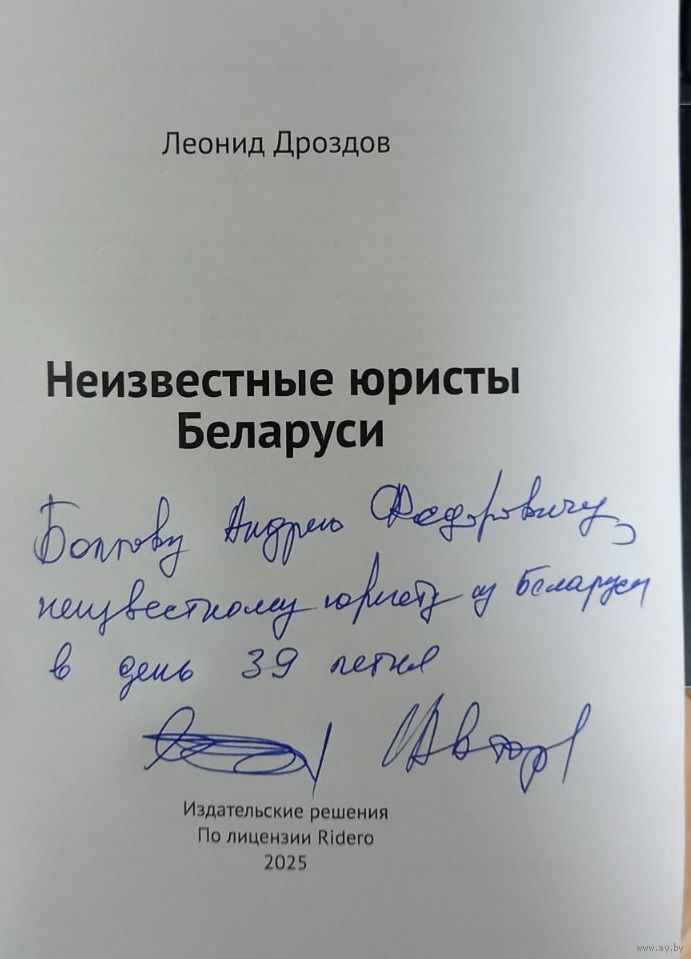 Леонид Дроздов
Неизвестные юристы
Беларуси
Андрею Федоровичу,
неизвестному юристу из Беларуси
в день 39 летия
Автор
Издательские решения
По лицензии Ridero
2025
www.ay.by